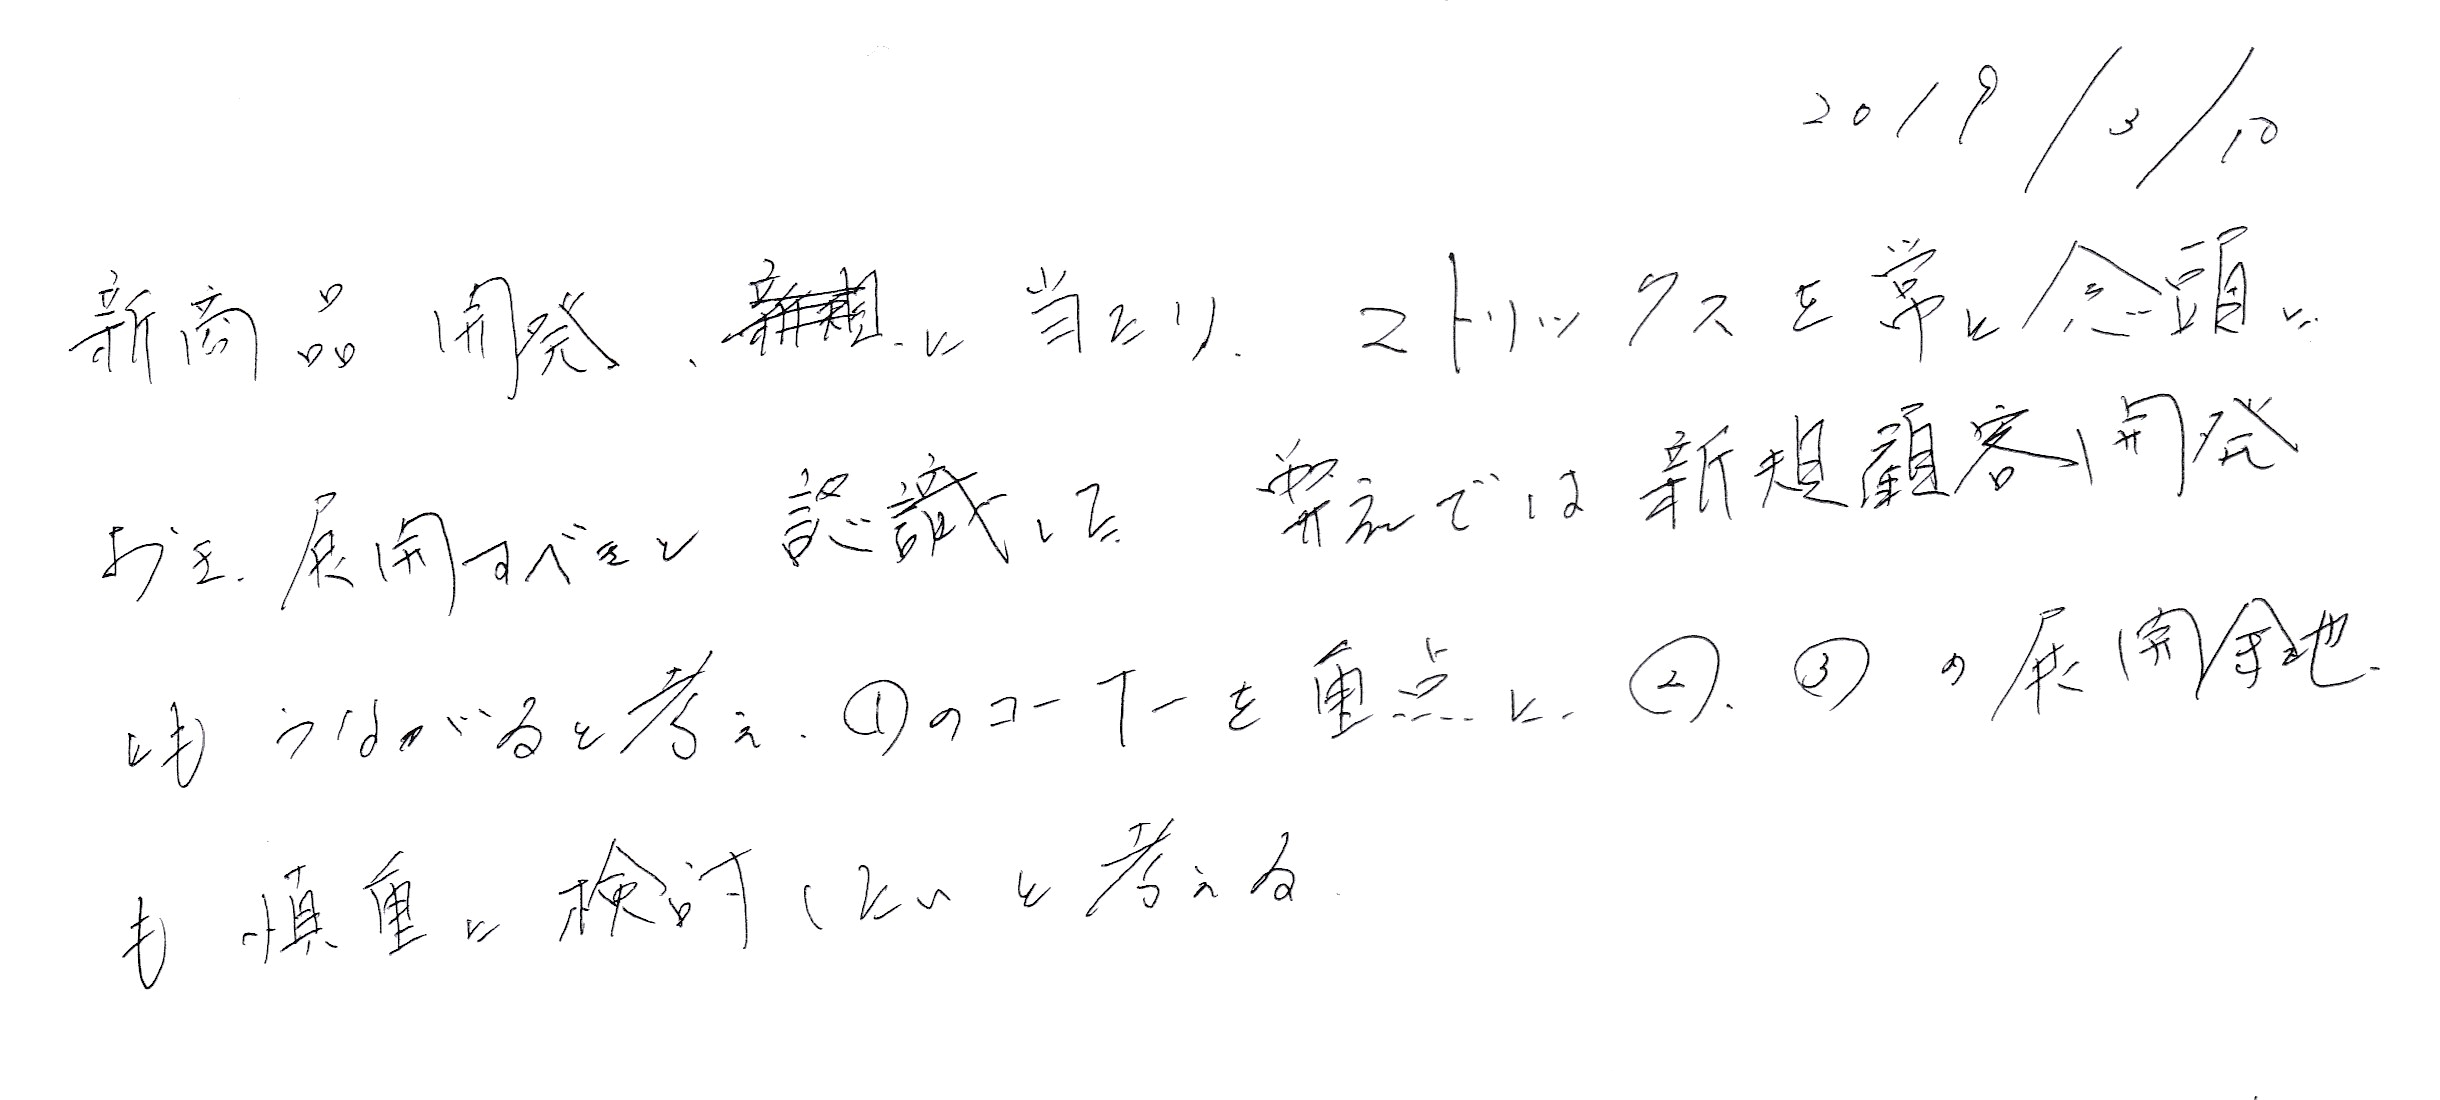 2019/3/10
新商品開発、に当たり、マトリックスを常に念頭に
おき、展開すべきと認識した 弊社では新規顧客開発
にもつながると考え、①のコーナーを重点に、②、③の展開余地
も慎重に検討したいと考える